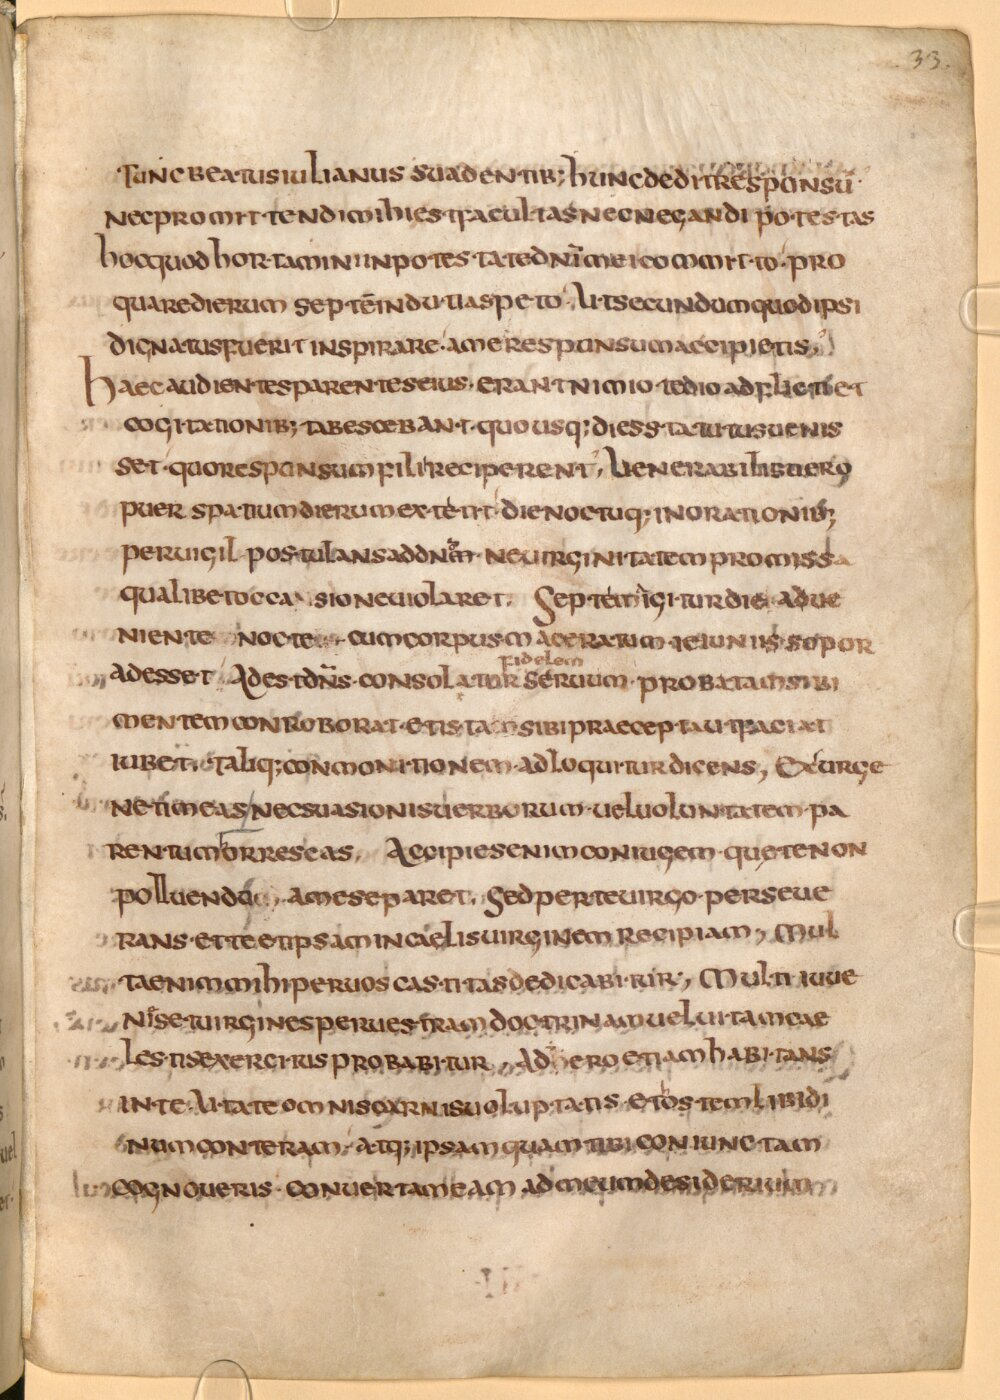 33.
Tunc beatus iulianus suadentib; hunc dedit responsū
nec promittendi mihi est facultas nec negandi potestas
hoc quod hortamini in potestate dn̄i mei committo. pro
qua re dierum septē indutias peto Ut secundum quod ipsi
dignatus fuerit inspirare. a me responsum accipietis,
Haec audientes parentes eius. erant nimio tedio adflicti et
cogitationib; tabescebant. quo usq; dies statutus uenis
set. quo responsum fili reciperent, Uenerabilis uero
puer spatium dierum extetit die noctuq; in orationib;
peruigil postulans ad dnm̄ ne uirginitatem promissa
qualibet occasione uiolaret. Septem igitur die adue
niente nocte cum corpus maceratum ieiuniis sopor
fidelem
adesset Adest dn̄s consolatur seruum probatam sibi
mentem conroborat et ista sibi praecepta ut faciat
iubet. Taliq; conmonitionem adloquitur dicens, Exurge
ne timeas nec suasionis uerborum uel uoluntatem pa
rentum orrescas, Accipies enim coniugem que te non
polluendo a me separet. Sed per te uirgo perseue
rans et te et ipsam in caelis uirginem recipiam, Mul
ta enim mihi per uos castitas dedicabitur, Multi iuue
nise uirgines per uestram doctrinam uel uitam cae
lestis exercitus probabitur, Adhero etiam habitans
in te Ut a te omnis carnis uoluptatis et ostem libidi
num conteram. atq; ipsam quam tibi coniunctam
cognoueris. conuertam eam ad meum desiderium